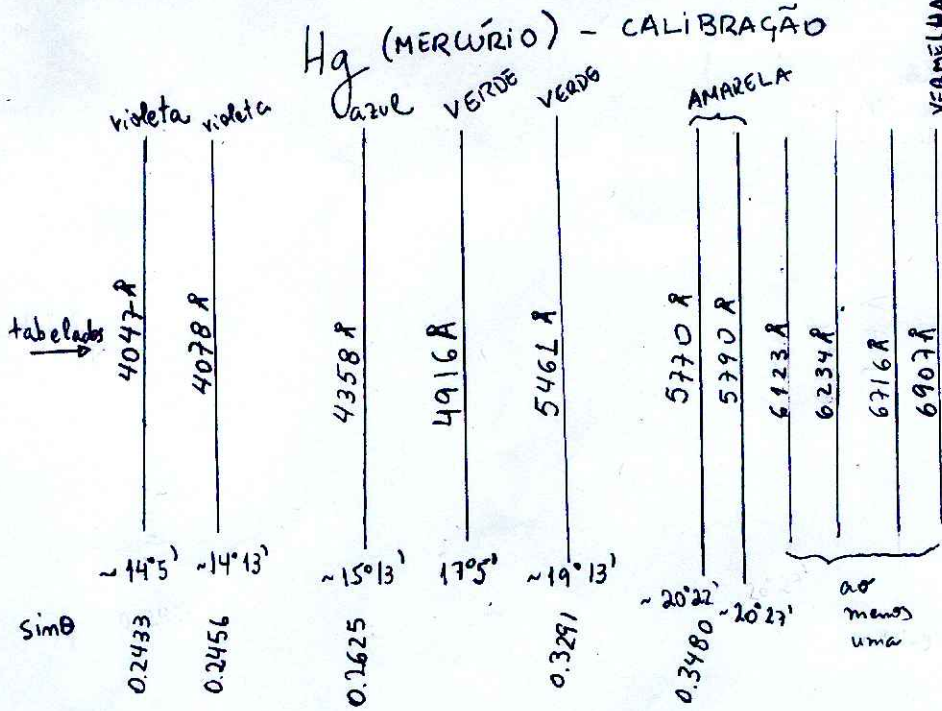 Hg (MERCÚRIO) - CALIBRAÇÃO
violeta violeta azul VERDE VERDE AMARELA VERMELHA
tabelados 4047 Å 4078 Å 4358 Å 4916 Å 5461 Å 5770 Å 5790 Å 6123 Å 6234 Å 6716 Å 6907 Å
~14°5' ~14°13' ~15°13' 17°5' ~19°13' ~20°22' ~20°27' ao
menos
uma
sinθ 0.2433 0.2456 0.2625 0.3291 0.3480